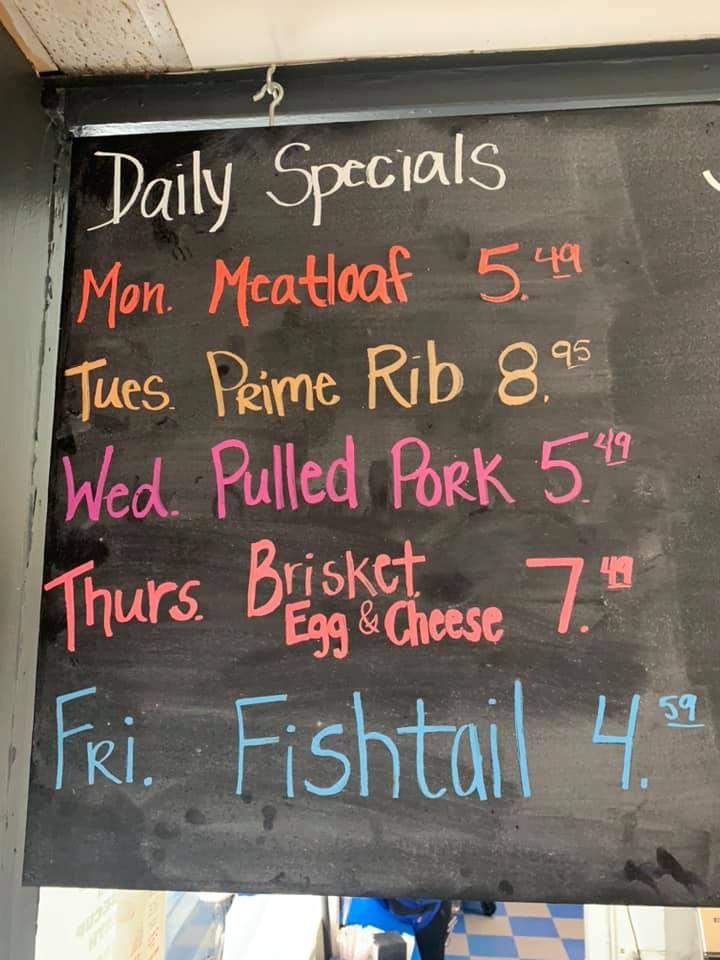 Daily Specials
Mon. Meatloaf 5.49
Tues. Prime Rib 8.95
Wed. Pulled Pork 5.49
Thurs. Brisket 7.49
Egg & Cheese
Fri. Fishtail 4.59